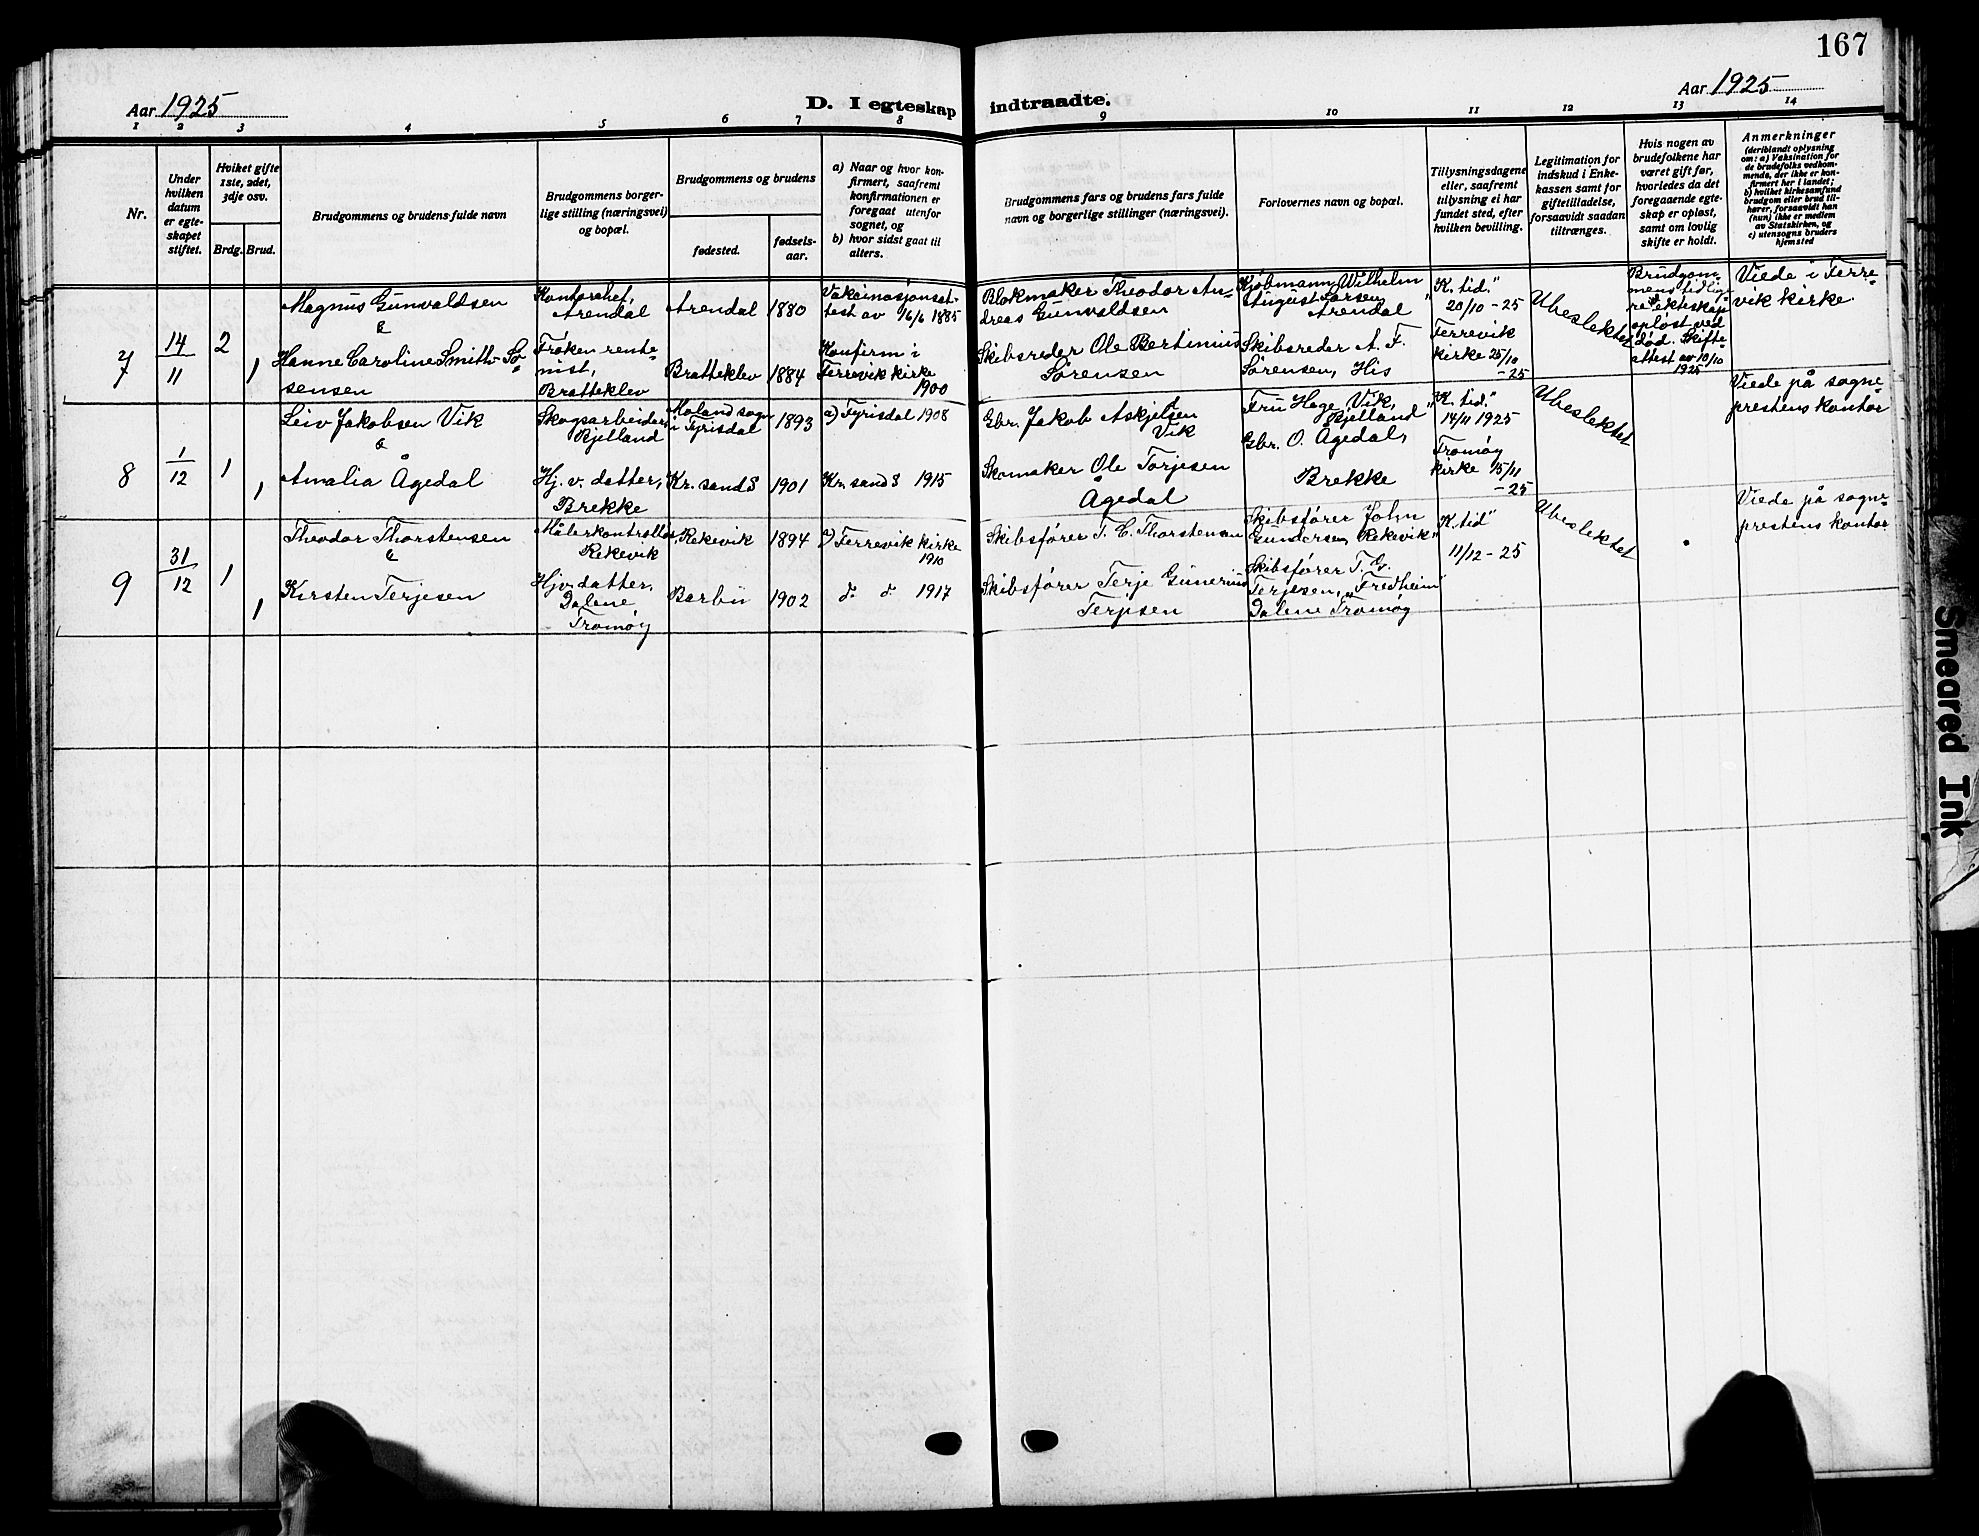 167
Aar 1925
D. I egteskap indtraadte.
Aar 1925
1 2 3 4 5 6 7 8 9 10 11 12 13 14
Nr.
Under
hvilken
datum
er egte-
skapet
stiftet.
Hviket gifte
1ste, 2det,
3dje osv.
Brdg. Brud.
Brudgommens og brudens fulde navn
Brudgommens borger-
lige stilling (næringsvei)
og bopæl.
Brudgommens og brudens
fødested.
fødsels-
aar.
a) Naar og hvor kon-
firmert, saafremt
konfirmationen er
foregaat utenfor
sognet, og
b) hvor sidst gaat til
alters.
Brudgommens fars og brudens fars fulde
navn og borgerlige stillinger (næringsvei).
Forlovernes navn og bopæl.
Tillysningsdagene
eller, saafremt
tillysning ei har
fundet sted, efter
hvilken bevilling.
Legitimation for
indskud i Enke-
kassen samt for
giftetilladelse,
forsaavidt saadan
tiltrænges.
Hvis nogen av
brudefolkene har
været gift før,
hvorledes da det
foregaaende egte-
skap er opløst,
samt om lovlig
skifte er holdt.
Anmerkninger
(deriblandt oplysning
om: a) Vaksination for
de brudefolks vedkom-
mende, der ikke er kon-
firmert her i landet;
b) hvilket kirkesamfund
brudgom eller brud til-
hører, forsaavidt han
(hun) ikke er medlem
av Statskirken, og
c) utensogns bruders
hjemsted
7
14
11
2
1
Magnus Gunvaldsen
&
Hanne Caroline Smith-Sø-
rensen
Kontorchef,
Arendal
Frøken rente-
nist,
Bratteklev
Arendal 1880
Bratteklev 1884
Vaksinasjonsat-
test av 16/6 1885
Konfirm i
Færrevik kirke
1900
Blokmaker Theodor An-
dreas Gunvaldsen
Skibsreder Ole Bertinius
Sørensen
Kjøbmann Wilhelm
August Larsen
Arendal
Skibsreder A. F.
Sørensen, His
"K. tid."
20/10 - 25
Færrevik
kirke 25/10
- 25
Ubeslektet
Brudgom
mens tidlige
re ekteskap
opløst ved
død. Skifte-
attest av 10/10
1925
Viede i Færre-
vik kirke.
8
1
12
1
1
Leiv Jakobsen Vik
&
Amalia Ågedal
Skogsarbeider,
Bjelland
Hj. v. datter,
Brekke
Moland sogn
i Fyrisdal 1893
Kr. sand S 1901
a) Fyrisdal 1908
Kr. sand S 1915
Gbr. Jakob Askjelsen
Vik
Skomaker Ole Torjesen
Ågedal
Fru Hege Vik,
Bjelland
Gbr. O. Ågedal,
Brekke
"K. tid."
14/11 1925
Tromøy
kirke 15/11
- 25
Ubeslektet
Viede på sogne-
prestens kontor
9
31
12
1
1
Theodor Thorstensen
&
Kirsten Terjesen
Målerkontrollør,
Rekevik
Hjv. datter,
Dalene,
Tromøy
Rekevik 1894
Barbu 1902
a) Færrevik kirke
1910
d. d. 1917
Skibsfører T. C. Thorstensen
Skibsfører Terje Gunerius
Terjesen
Skibsfører John
Gundersen, Rekevik
Skibsfører T. G.
Terjesen, "Fredheim"
Dalene Tromøy
"K. tid"
11/12 - 25
Ubeslektet
Viede på sogne-
prestens kontor
Smeared Ink